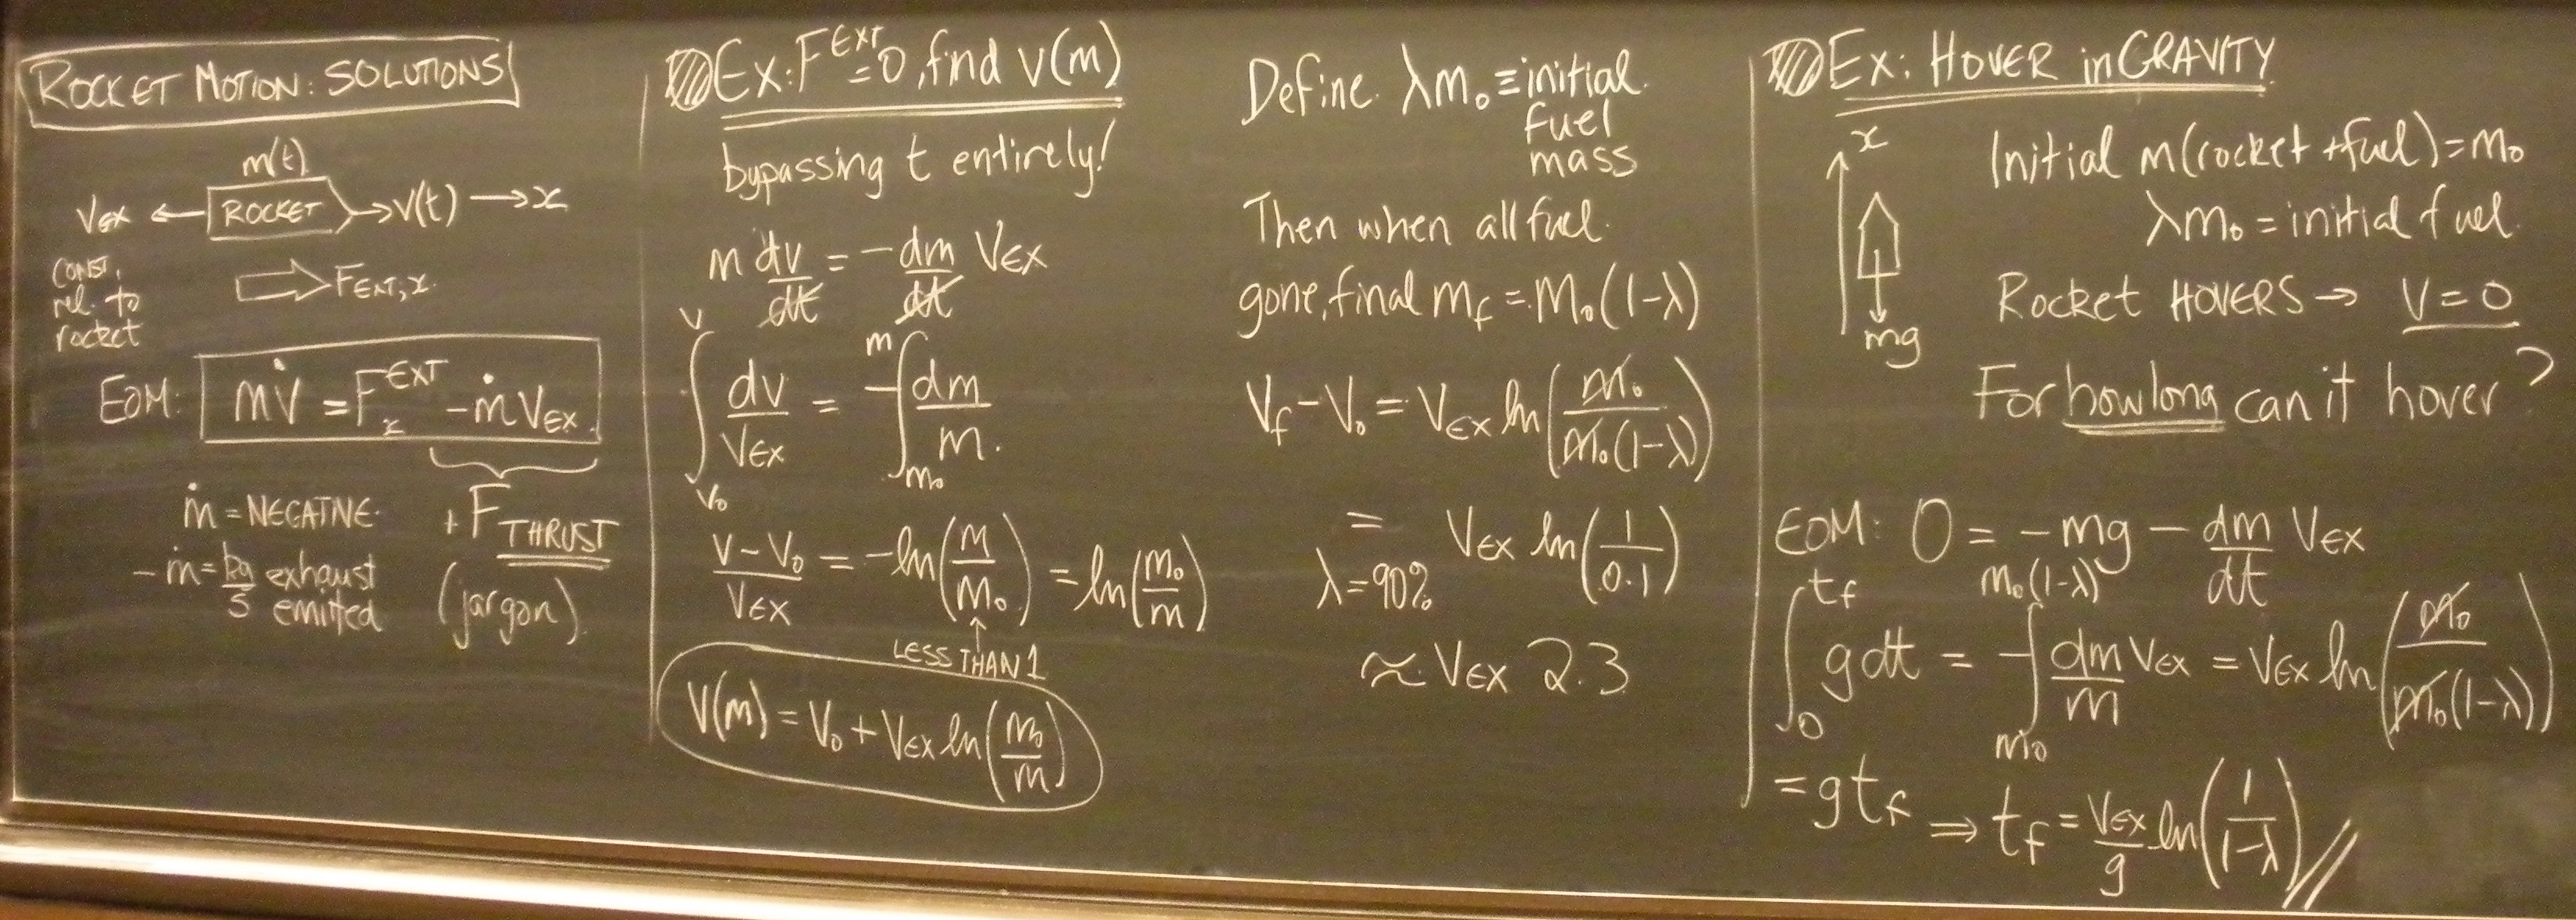 ROCKET MOTION: SOLUTIONS
m(t)
VEX ← ROCKET → V(t) → x
CONST,
rel. to
rocket
⇒ FEXT,x
EOM: mv̇ = F_x^EXT − ṁVEX
ṁ = NEGATIVE
+ FTHRUST
−ṁ = kg/s exhaust emitted
(jargon)
Ex: F^EXT = 0, find v(m)
bypassing t entirely!
m dv/dt = − dm/dt VEX
∫_{V₀}^{V} dv/VEX = −∫_{m₀}^{m} dm/m
(V − V₀)/VEX = −ln(m/m₀) = ln(m₀/m)
↑
LESS THAN 1
V(m) = V₀ + VEX ln(m₀/m)
Define λm₀ ≡ initial
fuel
mass
Then when all fuel
gone, final mf = m₀(1−λ)
Vf − V₀ = VEX ln(m₀/m₀(1−λ))
= VEX ln(1/0.1)
λ=90%
≈ VEX 2.3
Ex: HOVER in GRAVITY
x
mg
Initial m(rocket + fuel) = m₀
λm₀ = initial fuel
Rocket HOVERS → V = 0
For how long can it hover?
EOM: 0 = −mg − dm/dt VEX
∫_{0}^{tf} g dt = −∫_{m₀}^{m₀(1−λ)} dm/m VEX = VEX ln(m₀/m₀(1−λ))
= g tf ⇒ tf = VEX/g ln(1/1−λ) //